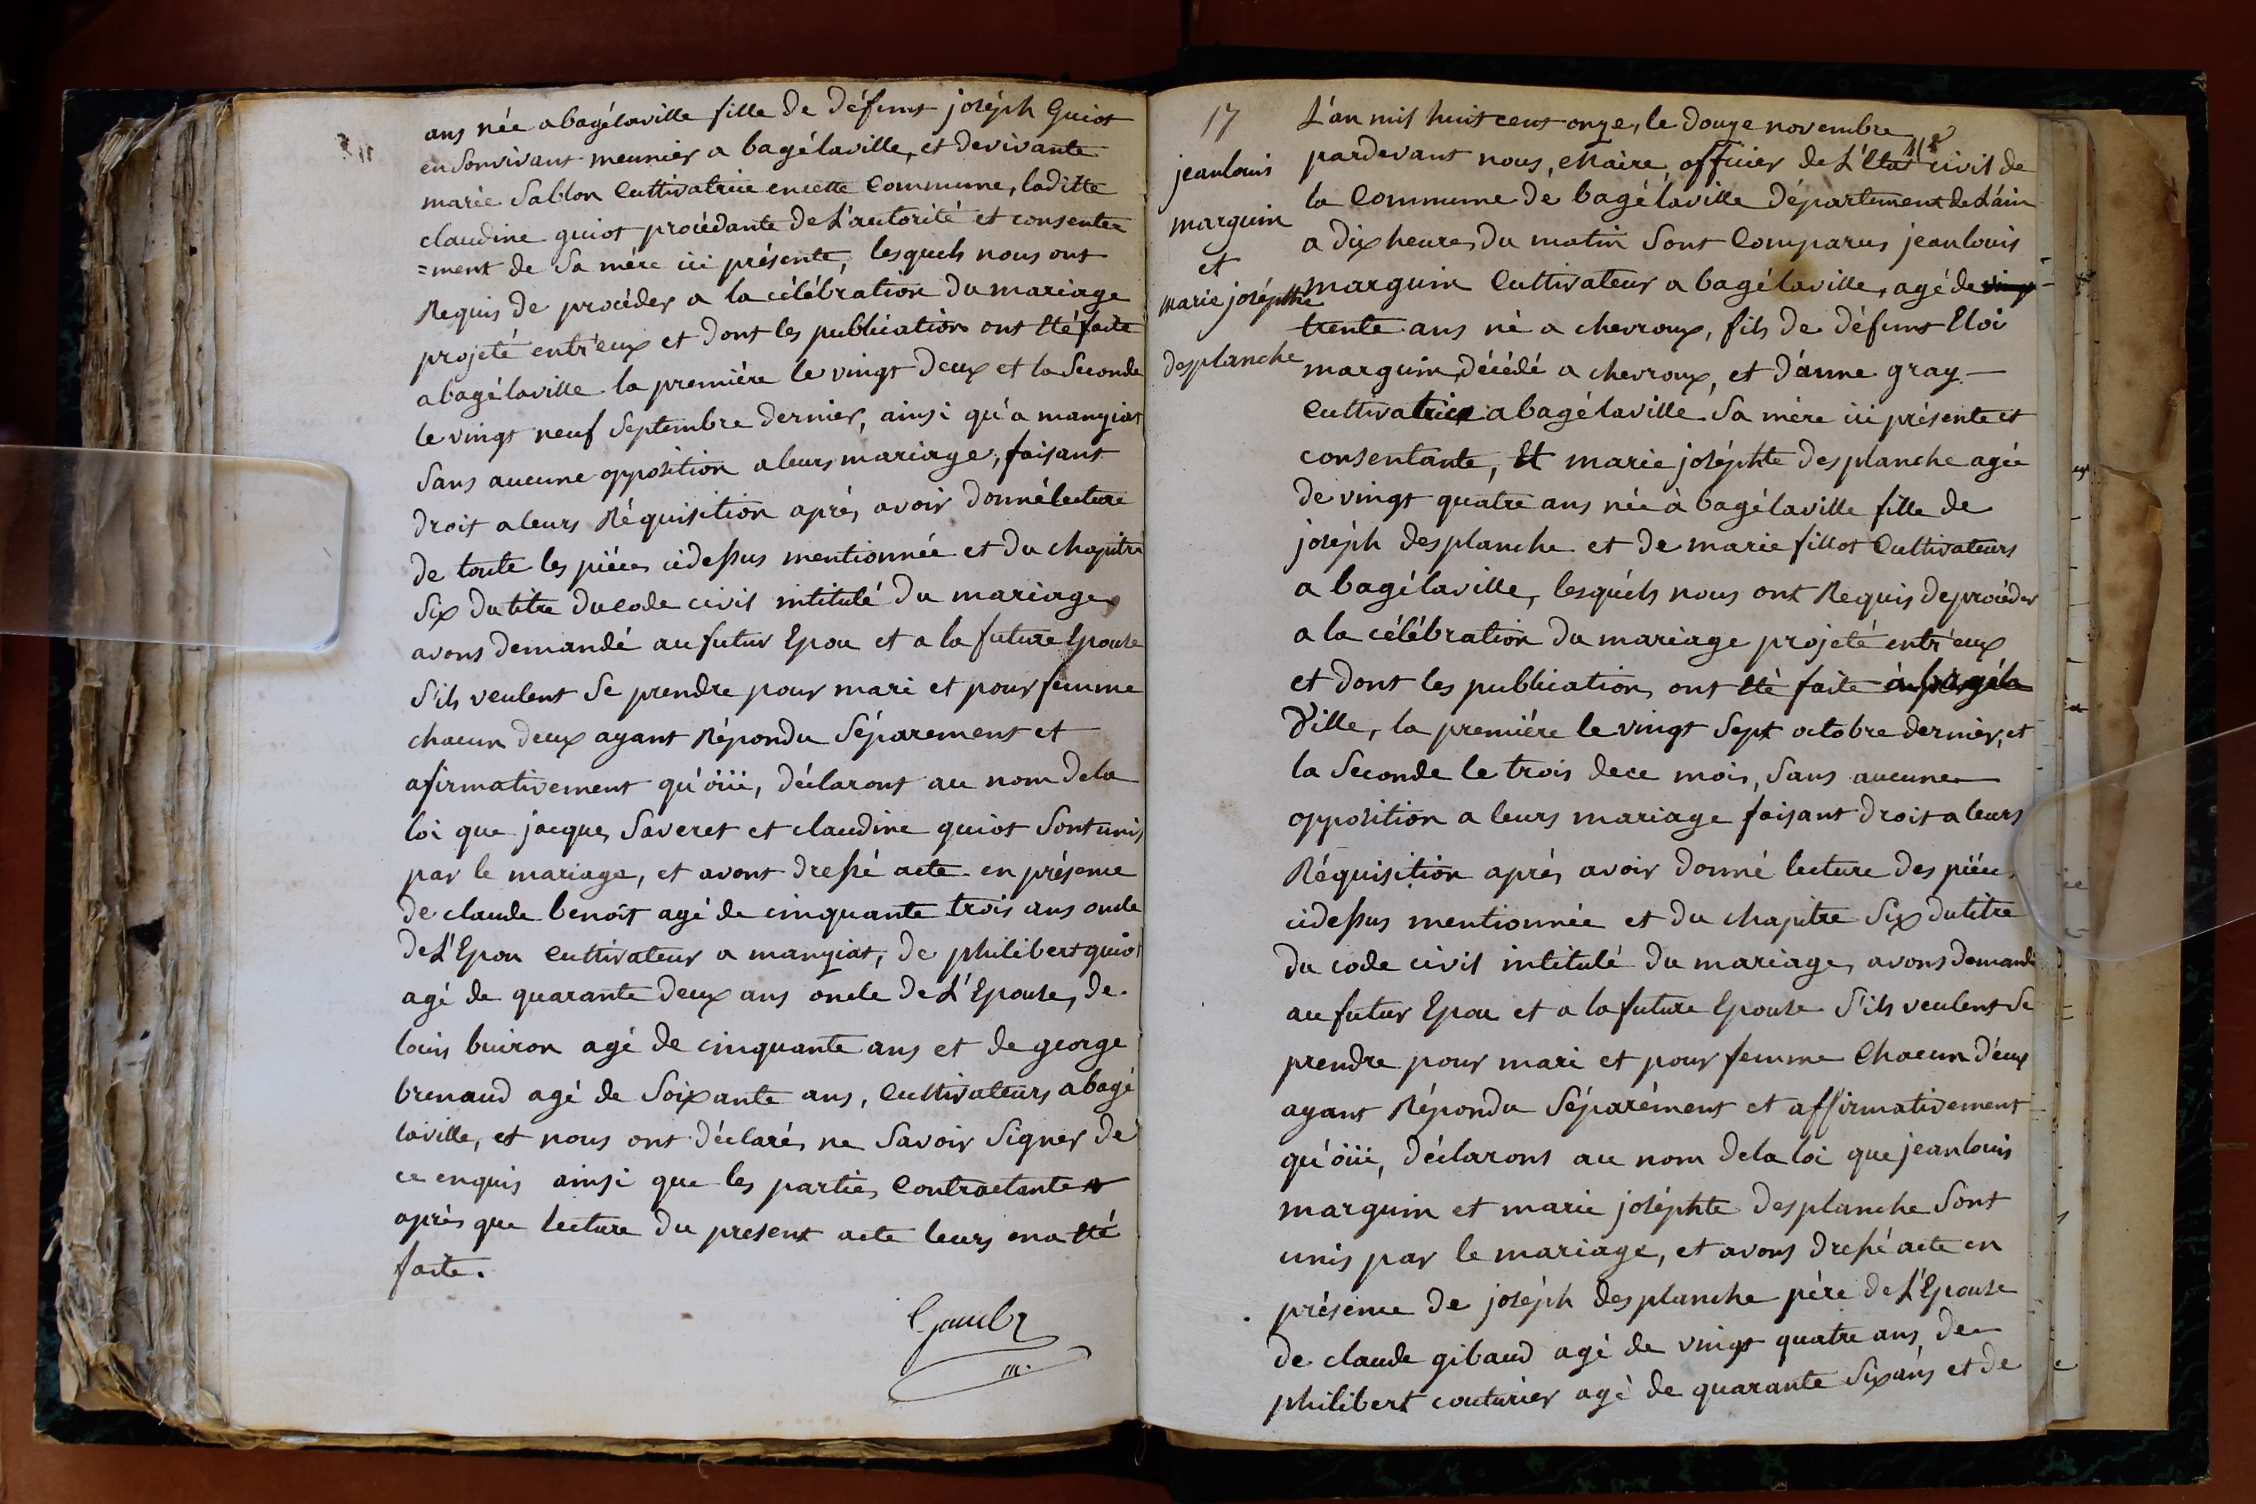 ans née a bagélaville fille de défunt joséph Guiot
en Sonvivant meunier a bagélaville, et devivante
marie Sablon Cultivatrice encette Commune, laditte
claudine guiot procédante de L'autorité et consente=
=ment de Sa mére ici présente, lesquels nous ont
Requis de procéder a la célébration du mariage
projeté entr'eux et dont les publication ont été faite
abagélaville la premiére le vingt deux et la Seconde
le vingt neuf Septembre dernier, ainsi qu'a manziat
Sans aucune opposition aleurs mariage, faisant
droit aleurs Réquisition aprés avoir donné lecture
de toute les piéces cidessus mentionnée et du chapitre
Six dutitre ducode civil intitulé du mariage
avons demandé aufutur Epou et a la future Epouse
S'ils veulent Se prendre pour mari et pour femme
chacun deux ayant Répondu Séparement et
afirmativement qu'oüi, déclarons au nom dela
loi que jacques Saveret et claudine guiot Sont unis
par le mariage, et avons dressé acte en présence
de claude benoit agé de cinquante trois ans oncle
deL'Epou Cultivateur a manziat, de philibert guiot
agé de quarante deux ans oncle de L'Epouse, de
louis buiron agé de cinquante ans et de george
brenaud agé de Soixante ans, Cultivateurs abagé
laville, et nous ont déclarés ne Savoir Signer de
ce enquis ainsi que les parties Contractante
après que lecture du present acte leurs ena été
faite.
m.
17
jeanlouis
marguin
et
marie joséphte
desplanche
L'an mil huit cent onze, le douze novembre
pardevant nous, Maire, officier de L'Etat civil de
la Commune de bagélaville département de L'ain
a dix heures du matin Sont Comparus jeanlouis
marguin Cultivateur a bagélaville, agé de vingt
trente ans né a chevroux, fils de défunt Eloi
marguin, décédé a chevroux, et d'anne gray
Cultivatrice abagélaville Sa mère ici présente et
consentante, Et marie joséphte desplanche agée
de vingt quatre ans née à bagélaville fille de
joséph desplanche et de marie fillot Cultivateurs
a bagélaville, lesquéls nous ont Requis deprocéder
a la célébration du mariage projeté entr'eux
et dont les publication, ont été faite à bagéla
Ville, la premiére le vingt Sept octobre dernier, et
la Seconde le trois dece mois, Sans aucune
opposition a leurs mariage faisant droit a leurs
Réquisition aprés avoir donné lecture des piéces
cidessus mentionnée et du chapitre Six dutitre
du code civil intitulé du mariage, avons demandé
au futur Epou et a la future Epouse S'ils veulent Se
prendre pour mari et pour femme Chacun d'eux
ayant Répondu Séparément et affirmativement
qu'oüi, déclarons au nom dela loi que jeanlouis
marguin et marie joséphte desplanche Sont
unis par le mariage, et avons dressé acte en
présence de joséph desplanche pére de L'Epouse
de claude gibaud agé de vingt quatre ans, de
philibert couturier agé de quarante Six ans et de